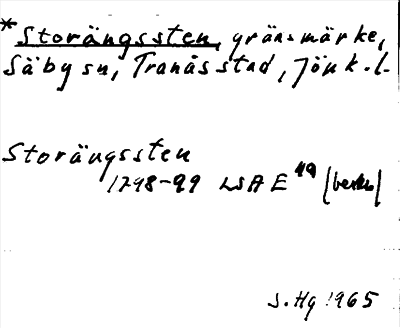 *Storängssten, gränsmärke,
Säby sn, Tranås stad, Jönk. l.
Storängssten
1798-99 LSA E 49 (beskr)
S. Hg 1965